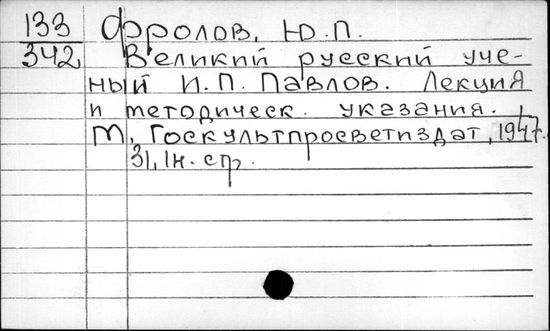 133 Фролов, Ю.П.
342 Великий русский уче-
ный И.П. Павлов. Лекция
и методическ. указания.
М, Госкультпросветиздат, 1947.
31, 1н. стр.